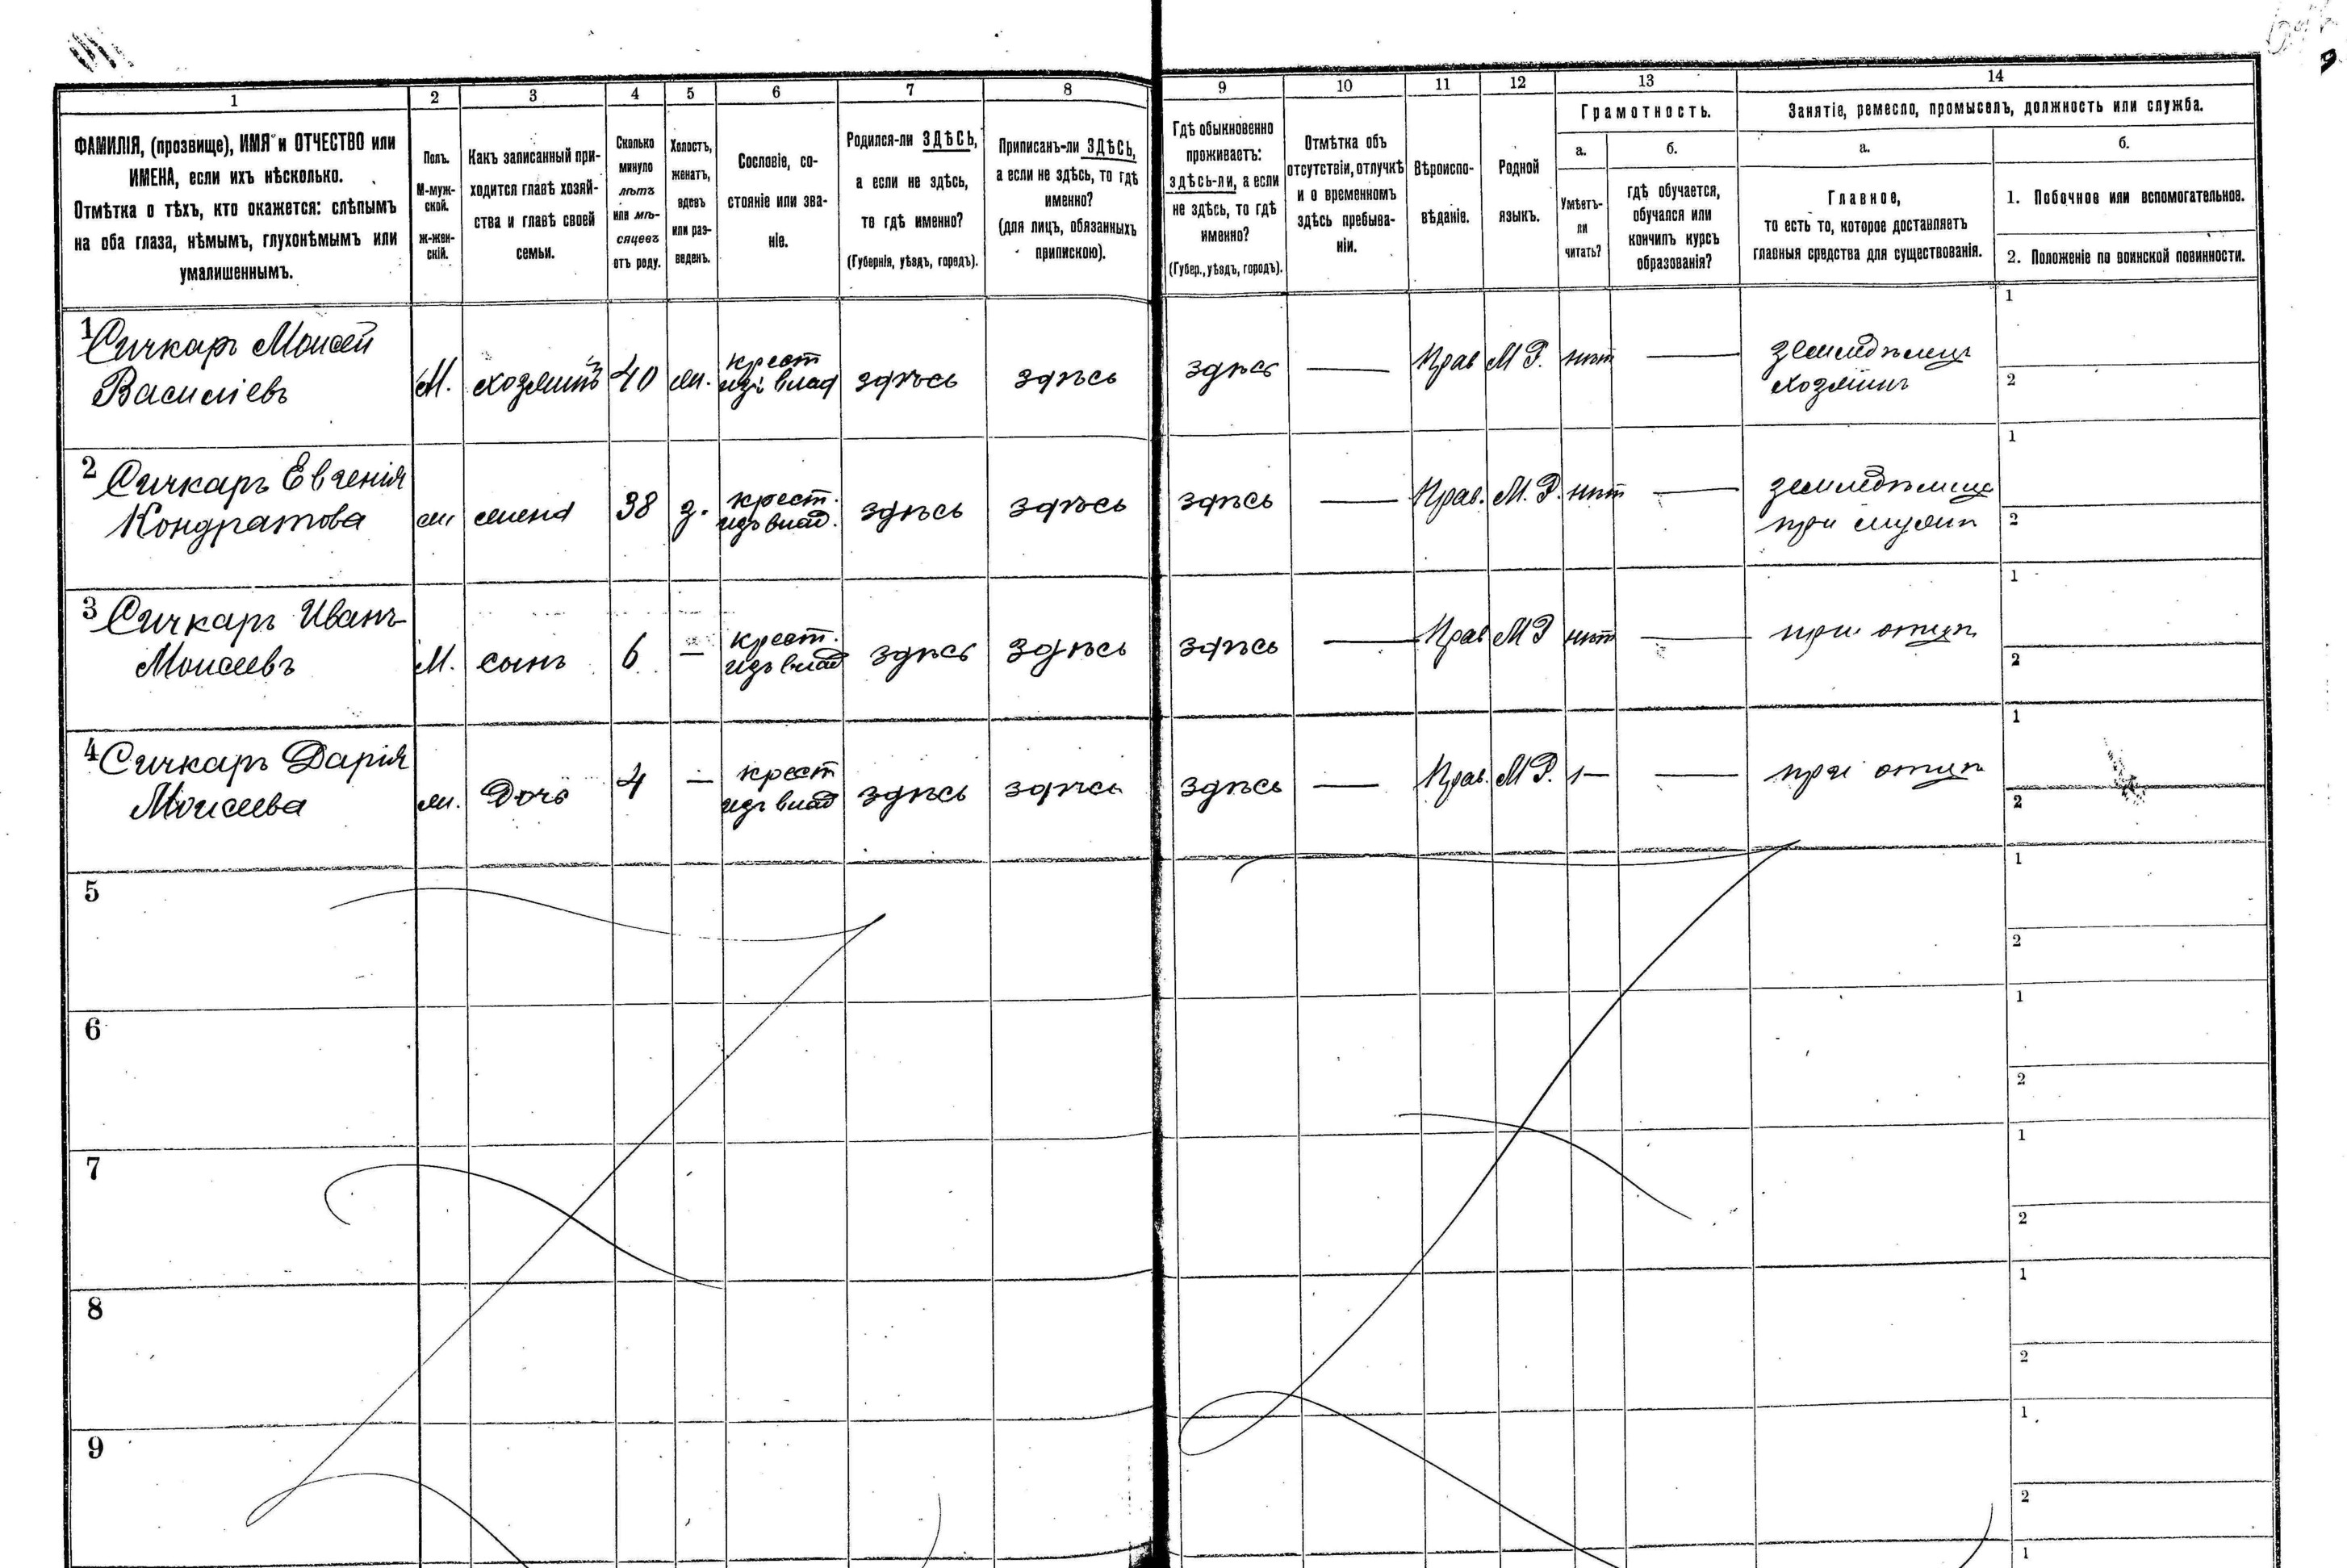 1 2 3 4 5 6 7 8 9 10 11 12 13 14
ФАМИЛІЯ, (прозвище), ИМЯ и ОТЧЕСТВО или
ИМЕНА, если ихъ нѣсколько.
Отмѣтка о тѣхъ, кто окажется: слѣпымъ
на оба глаза, нѣмымъ, глухонѣмымъ или
умалишеннымъ.
Полъ.
М-муж-
ской.
ж-жен-
скій.
Какъ записанный при-
ходится главѣ хозяй-
ства и главѣ своей
семьи.
Сколько
минуло
лѣтъ
или мѣ-
сяцевъ
отъ роду.
Холостъ,
женатъ,
вдовъ
или раз-
веденъ.
Сословіе, со-
стояніе или зва-
ніе.
Родился-ли ЗДѢСЬ,
а если не здѣсь,
то гдѣ именно?
(Губернія, уѣздъ, городъ).
Приписанъ-ли ЗДѢСЬ,
а если не здѣсь, то гдѣ
именно?
(для лицъ, обязанныхъ
припискою).
Гдѣ обыкновенно
проживаетъ:
здѣсь-ли, а если
не здѣсь, то гдѣ
именно?
(Губер., уѣздъ, городъ).
Отмѣтка объ
отсутствіи, отлучкѣ
и о временномъ
здѣсь пребыва-
ніи.
Вѣроиспо-
вѣданіе.
Родной
языкъ.
Грамотность.
а.
Умѣетъ-
ли
читать?
б.
гдѣ обучается,
обучался или
кончилъ курсъ
образованія?
Занятіе, ремесло, промыселъ, должность или служба.
а.
Главное,
то есть то, которое доставляетъ
главныя средства для существованія.
б.
1. Побочное или вспомогательное.
2. Положеніе по воинской повинности.
1 Сичкаръ Моисей
Василіевъ
М. хозяинъ 40 ж. крест
изъ влад здѣсь здѣсь здѣсь — Прав М Р. нѣт — земледѣлец
хозяин
1
2
2 Сичкаръ Евгенія
Кондратова
ж жена 38 з. крест.
изъ влад. здѣсь здѣсь здѣсь — Прав. М. Р. нѣт — земледѣлица
при мужѣ
1
2
3 Сичкаръ Иванъ
Моисеевъ
М. сынъ 6 — крест.
изъ влад здѣсь здѣсь здѣсь — Прав М Р нѣт — при отцѣ
1
2
4 Сичкаръ Дарія
Моисеева
ж. Дочь 4 — крест
изъ влад здѣсь здѣсь здѣсь — Прав. М Р. — — при отцѣ
1
2
5
1
2
6
1
2
7
1
2
8
1
2
9
1
2
1
9